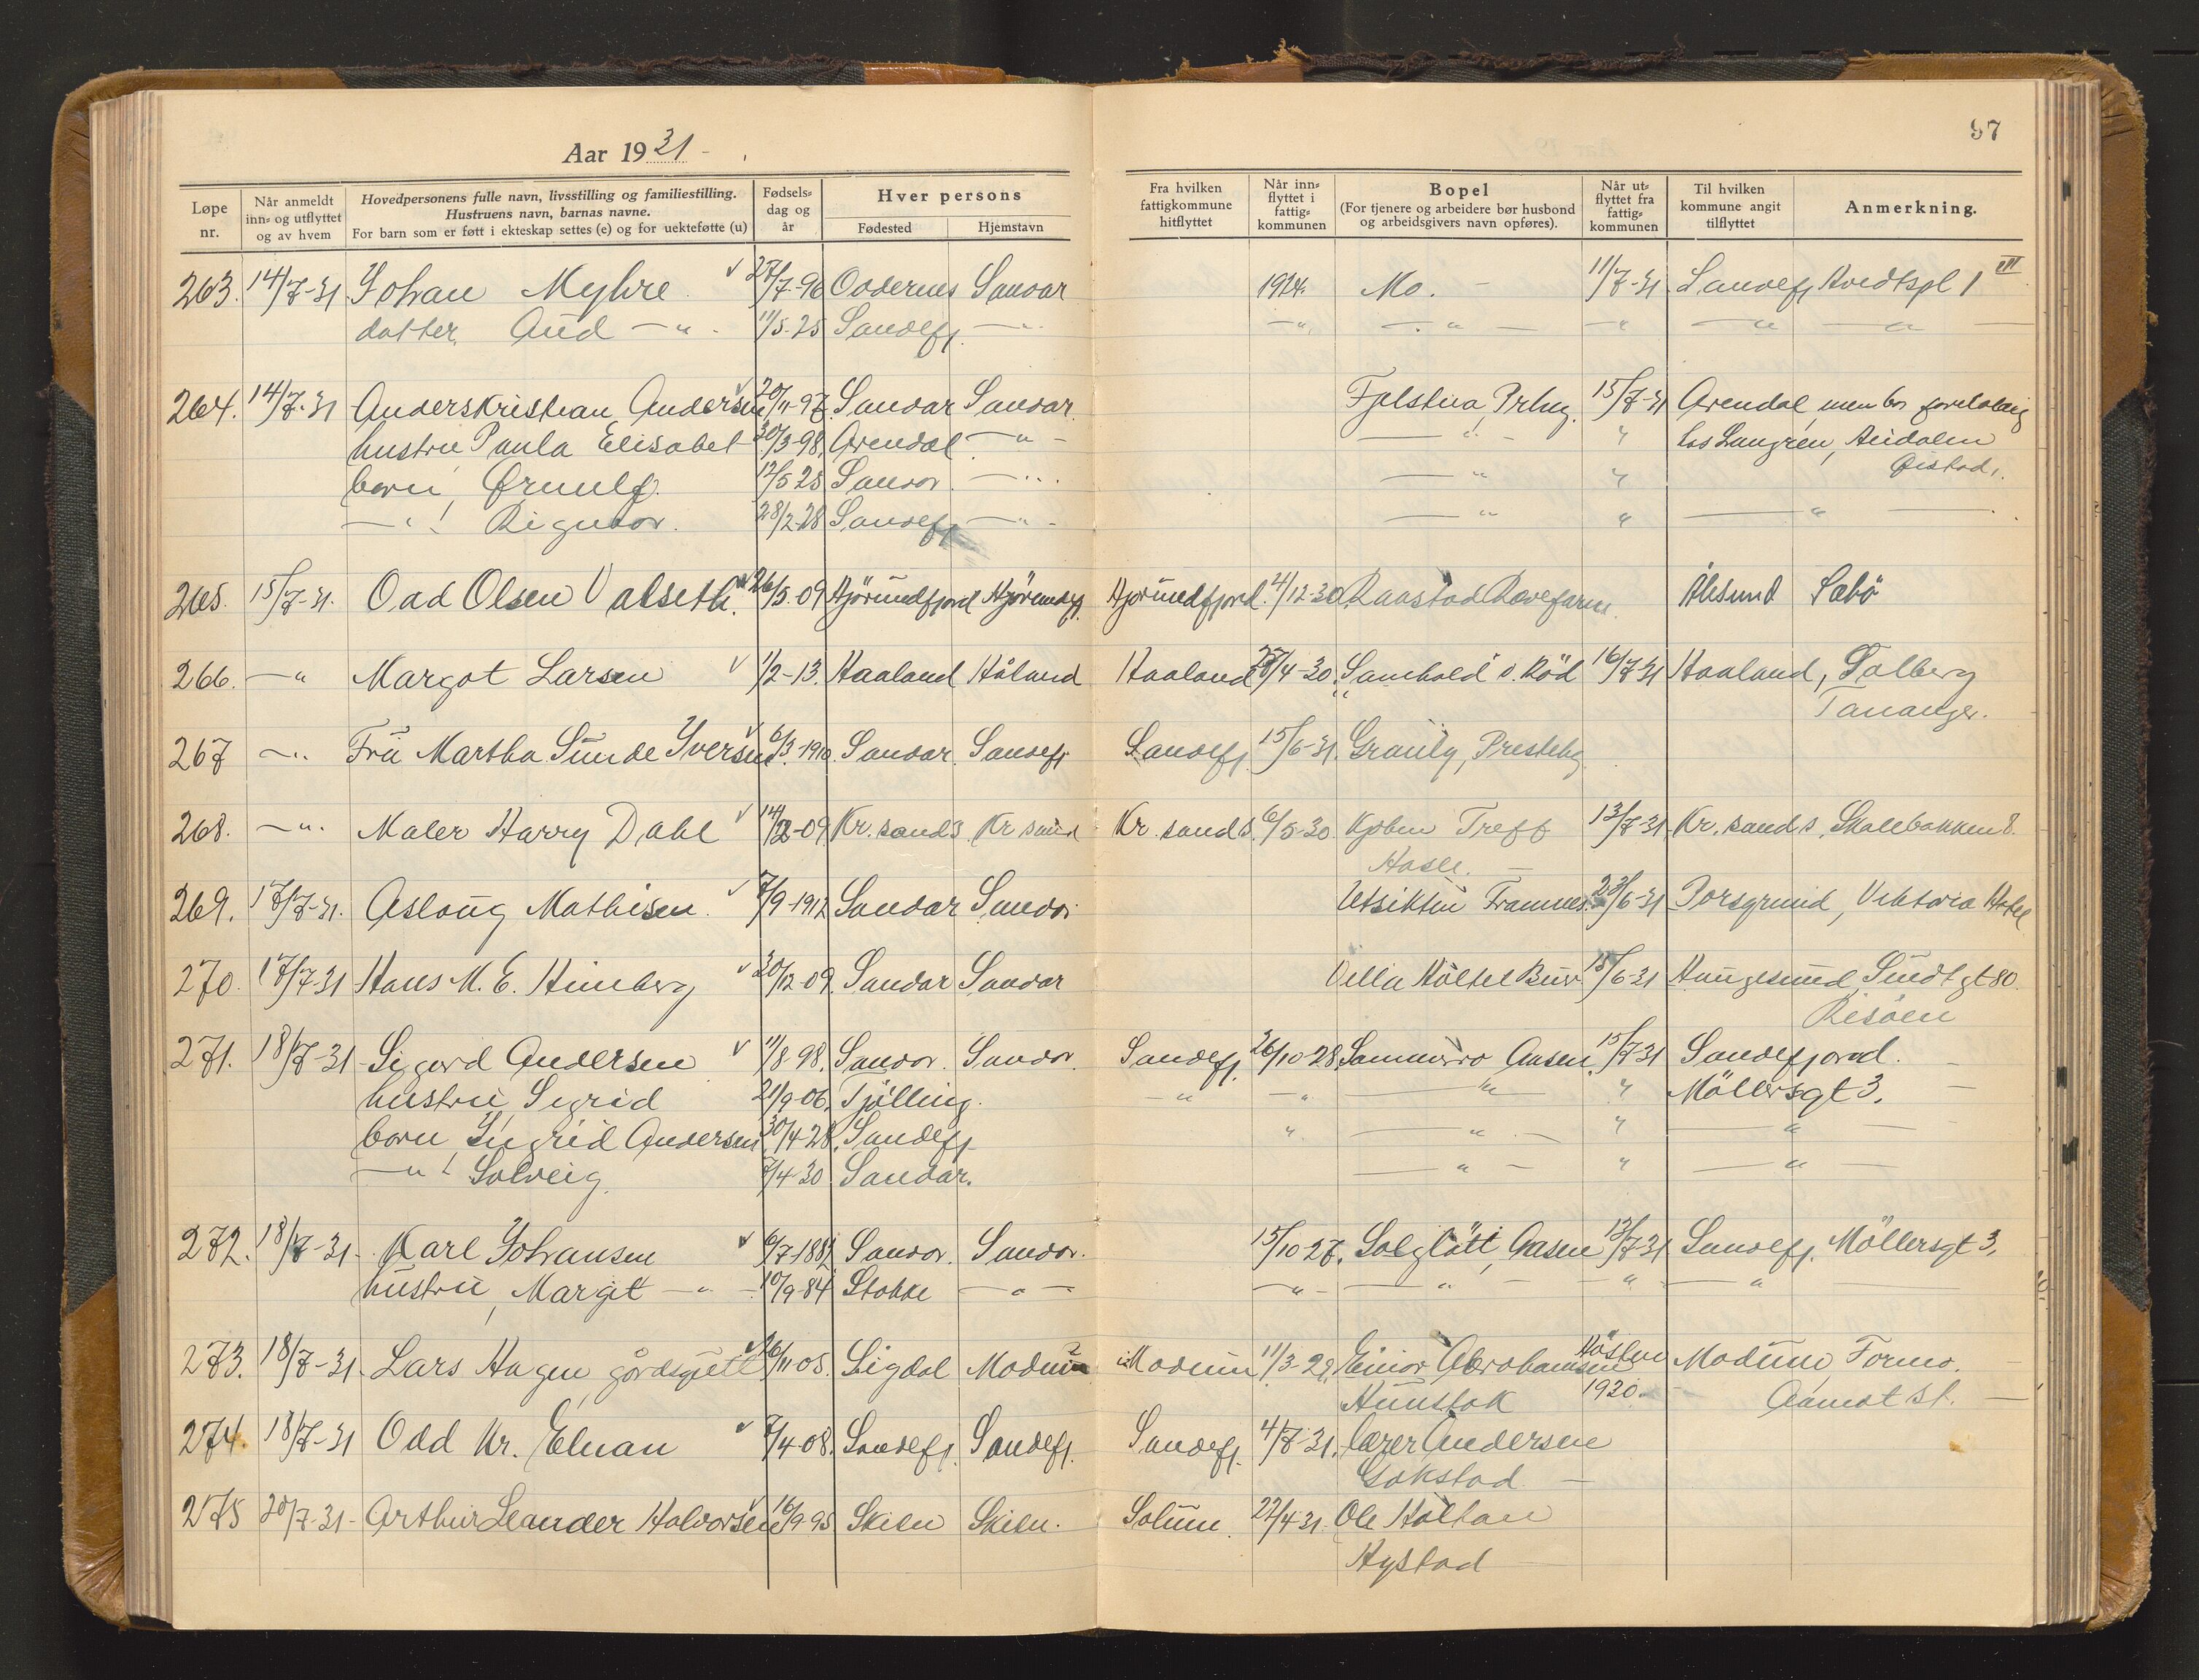 97
Aar 1931
Løpe nr. Når anmeldt inn= og utflyttet og av hvem Hovedpersonens fulle navn, livsstilling og familiestilling. Hustruens navn, barnas navne. For barn som er føtt i ekteskap settes (e) og for uekteføtte (u) Fødsels= dag og år Hver persons Fødested Hjemstavn Fra hvilken fattigkommune hitflyttet Når inn= flyttet i fattig= kommunen Bopel (For tjenere og arbeidere bør husbond og arbeidsgivers navn opføres). Når ut= flyttet fra fattig= kommunen Til hvilken kommune angit tilflyttet Anmerkning.
263. 14/7-31 Johan Myhre 27/7-96 Oddernes Sandar 1924. Mo. 11/7-31 Sandefj Hvedtspl 1 III
datter Aud -"- 11/5-25 Sandefj. -"- -"- -"- " -"- -"-
264. 14/7-31 Anders Kristian Andersen 20/11-97 Sandar Sandar. 15/7-31 Arendal, men bor foreløbig
hustru Paula Elisabet 30/3-98 Arendal -"- -"- " hos Langren,
born, Ørnulf. 12/5 25 Sandar -"- -"- " Øistad.
-"- Rigmor. 28/2-28 Sandefj -"- -"- " -"-
265. 15/7-31. Odd Olsen Valseth. 26/5-09 Hjörundfjord Hjörundfj. Hjörundfjord. 4/12-30 Raastad Revefarm. Ålesund Sæbö
266. -"- Margot Larsen 1/2-13. Haaland Håland Haaland 27/4-30 Samhold ö. Röd 16/7-31 Haaland, Solberg
Tananger.
267 -"- Fru Martha Sunde Iversen 6/3-1910. Sandar. Sandefj Sandefj. 15/6-31. Granly, Presteby
268. -"- Maler Harry Dahl 14/12-09 Kr.sand S. Kr sand Kr. sand S. 6/5-30. Kjöbm Treff 13/7-31 Kr. sand S, Skolebakken 8.
Hasle.
269. 17/7-31. Aslaug Mathisen. 7/9-1912 Sandar Sandar Utsikten Framnes. 23/6-31 Porsgrund, Viktoria Hotel
270. 17/7-31 Hans M. E. Himberg 30/12-09. Sandar Sandar Villa 15/6-31 Haugesund, Sundt gt 80.
Risöen
271. 18/7-31 Sigurd Andersen 11/8-98. Sandar. Sandar. Sandefj. 26/10-28 Sommerro Aasen. 15/7-31 Sandefjord.
hustru, Sigrid 21/9-06. Tjölling. -"- -"- -"- " Möllersgt 3.
born, Ingrid Andersen 30/4-28. Sandefj " -"- " -"-
-"- Solveig. 7/4-30 Sandar. -"- " -"-
272. 18/7-31 Karl Johansen 6/7-1882 Sandar. Sandar. 15/10-27. Solgløtt, Aasen 13/7-31 Sandefj. Möllersgt 3.
hustru, Margit -"- 10/9-84 Stokke -"- -"- -"- -"- -"-
273. 18/7-31. Lars Hagen, gårdsgutt 26/11-05. Sigdal Modum Modum 11/3-29. Einar Abrahamsen Hösten Modum, Formo.
Hunstok 1930. Aamot st.
274. 18/7-31 Odd Kr. Elnan 7/4-08. Sandefj. Sandefj. Sandefj. 4/7-31. Andersen
Gokstad
275 20/7-31 Arthur Leander Halvorsen 16/9-95 Skien Skien. Solum. 22/4-31. Ole Holtan
Nystad